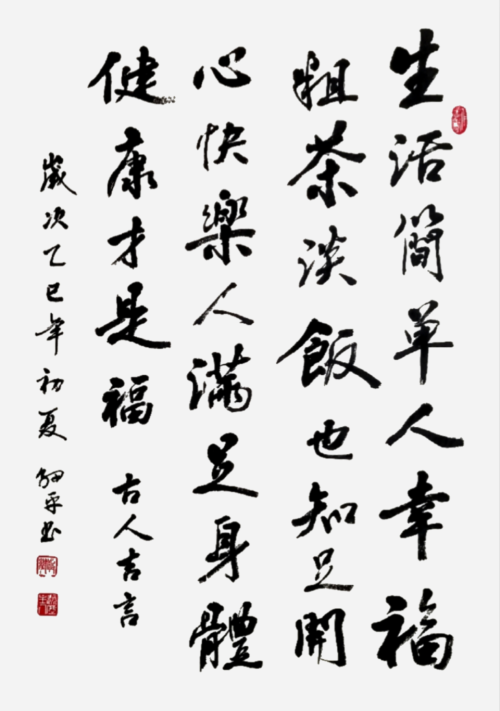 生活簡单人幸福
粗茶淡飯也知足開
心快樂人滿足身體
健康才是福 古人吉言
歲次乙巳年初夏 平书